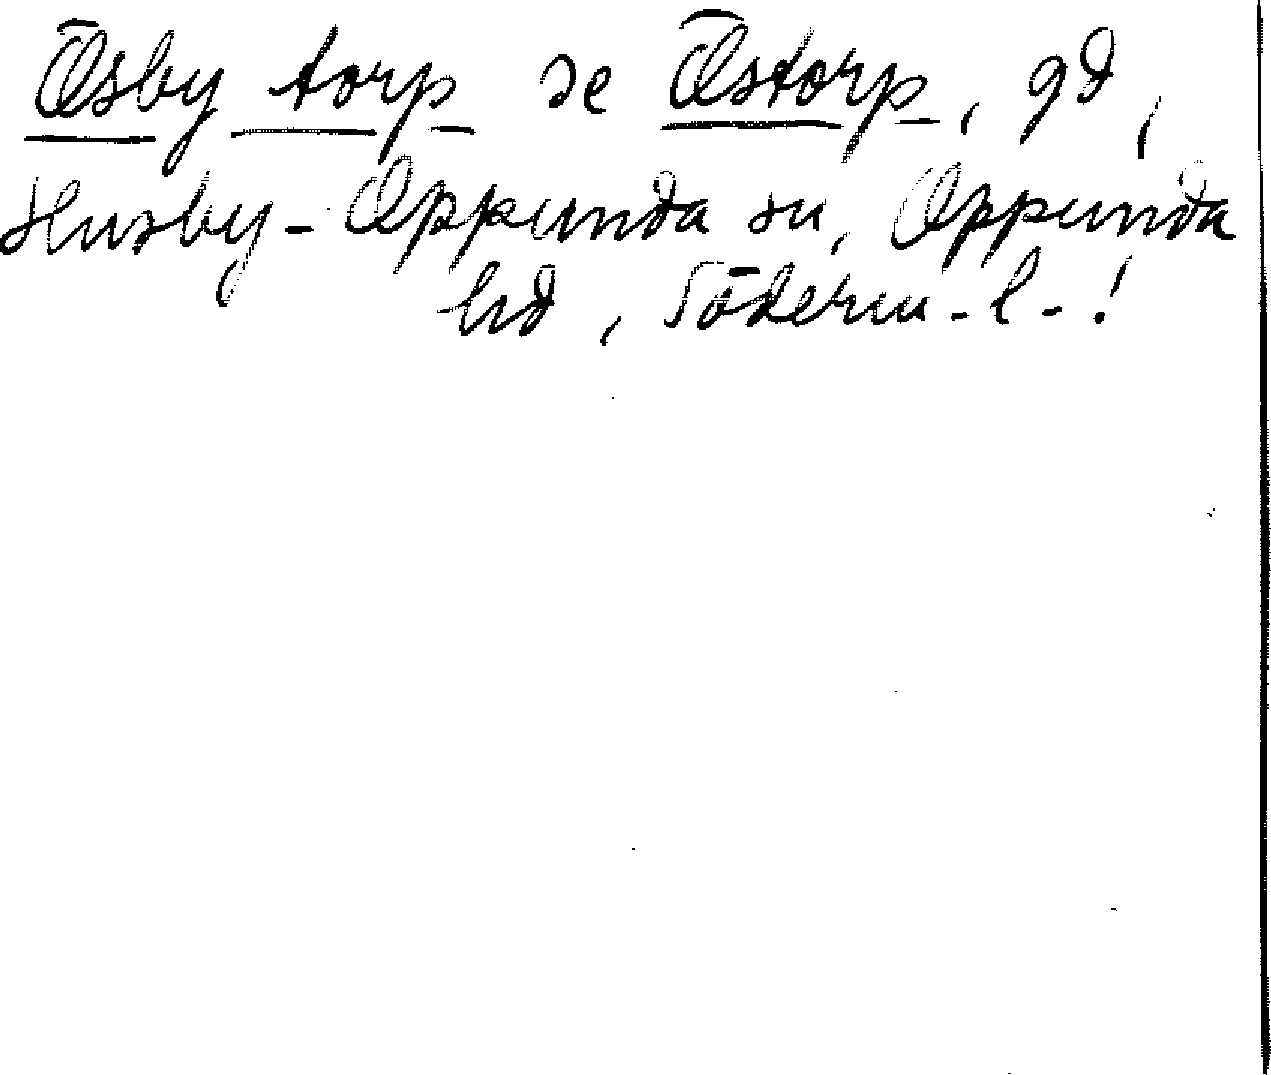 Ösby torp se Östorp, gd,
Husby-Oppunda sn, Oppunda
hd, Söderm-l-!